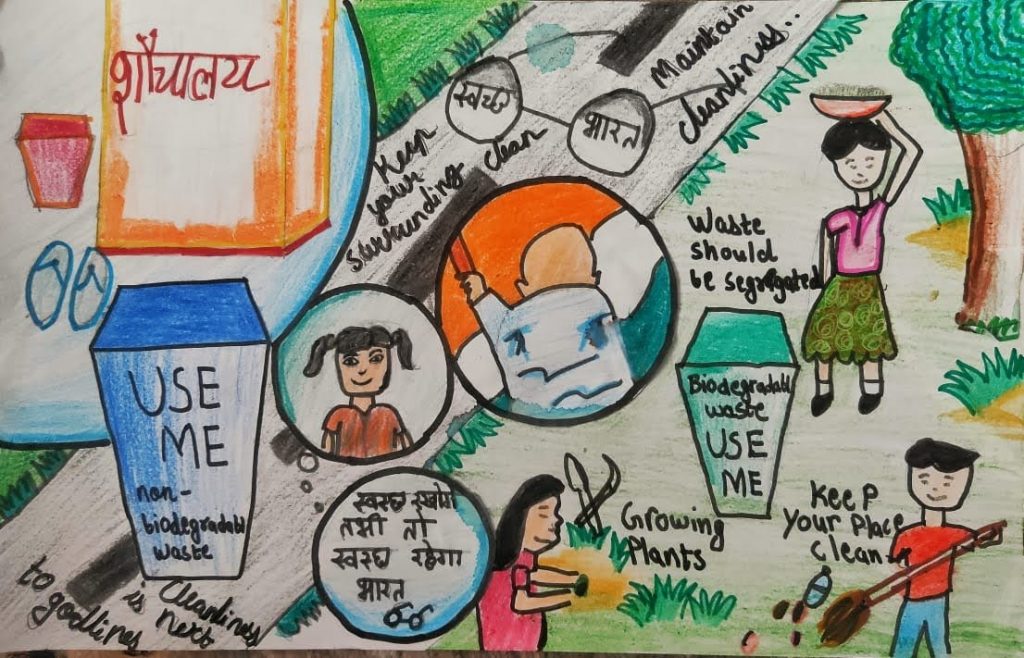 शौचालय
स्वच्छ
भारत
Maintain
cleanliness..
Keep
your
surrounding clean
Waste
should
be segregated
USE
ME
non-
biodegradabl
waste
Biodegradabl
waste
USE
ME
स्वच्छ रखोगे
तभी तो
स्वच्छ रहेगा
भारत
Growing
Plants
Keep
Your Place
clean
Cleanliness
is next
to godlines